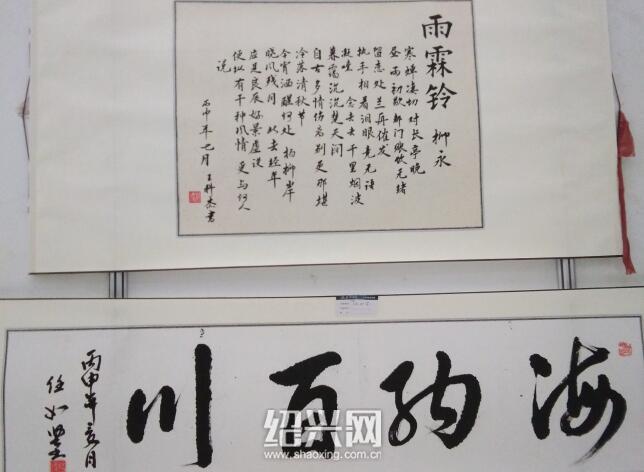 雨霖铃 柳永
寒蝉凄切 对长亭晚
骤雨初歇 都门帐饮无绪
留恋处 兰舟催发
执手相看泪眼 竟无语
凝噎 念去去千里烟波
暮霭沉沉楚天阔
自古多情伤离别 更那堪
冷落清秋节
今宵酒醒何处 杨柳岸
晓风残月 此去经年
应是良辰好景虚设
便纵有千种风情 更与何人
说
丙申年七月 王科杰书
海纳百川
丙申年亥月
任如
绍兴网
www.shaoxing.com.cn